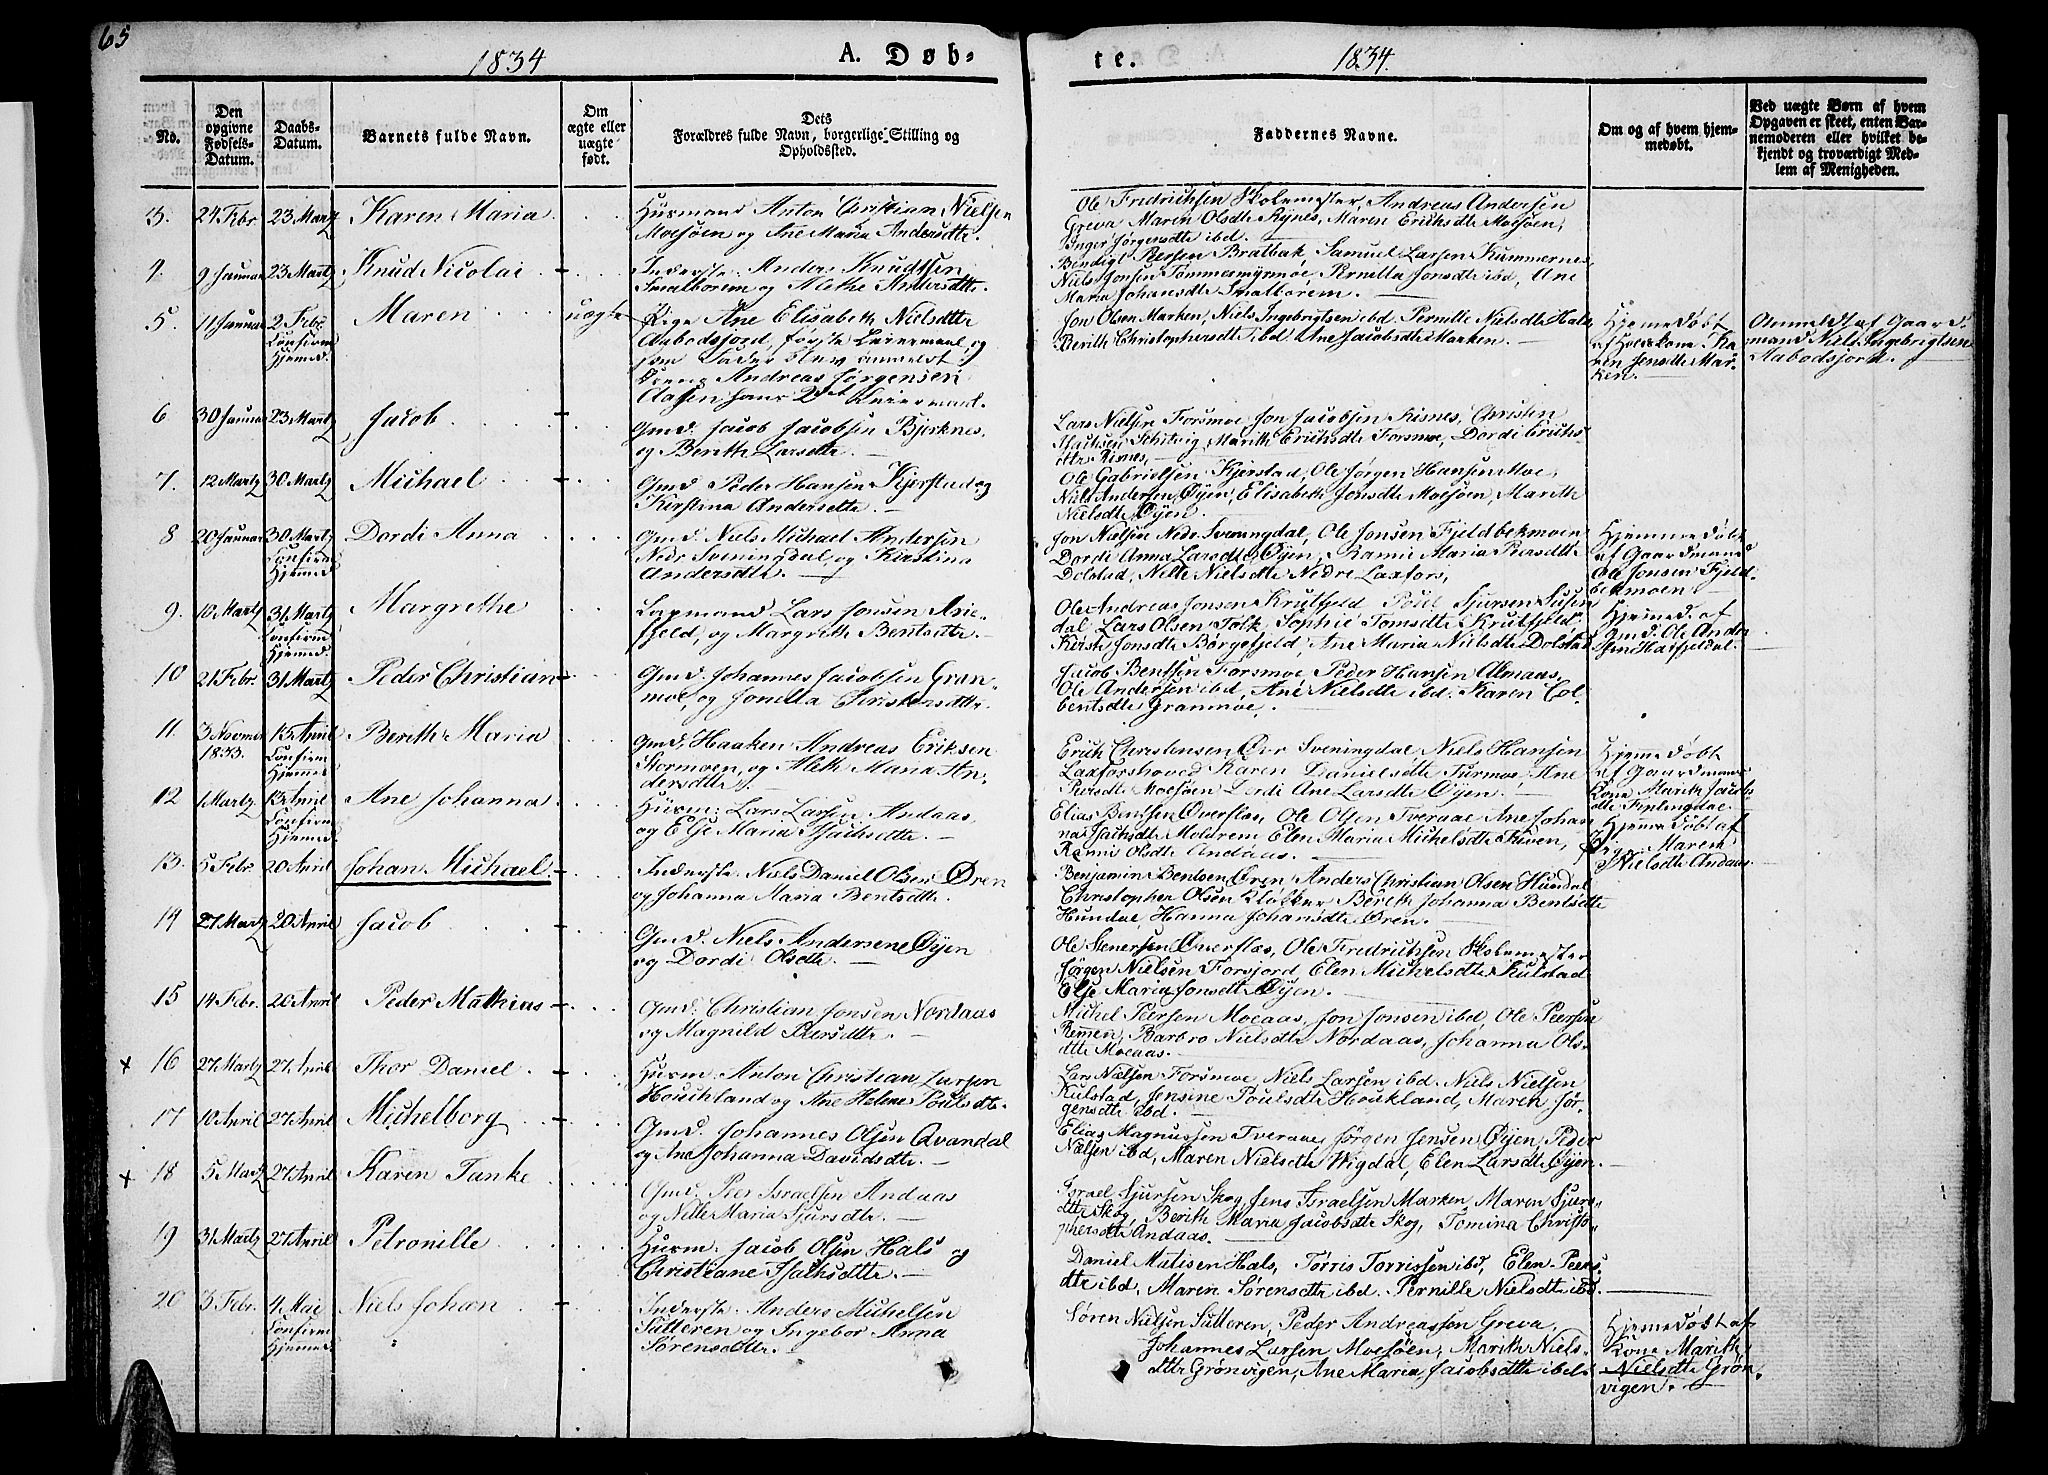 65
1834
A. Døb-
te.
1834.
No.
Den opgivne Fødsels-Datum.
Daabs-Datum.
Barnets fulde Navn.
Om ægte eller uægte født.
Dets Forældres fulde Navn, borgerlige Stilling og Opholdssted.
Faddernes Navne.
Om og af hvem hjem-medøbt.
Ved uægte Børn af hvem Opgaven er skeet, enten Bar-nemoderen eller hvilket be-kjendt og troværdigt Med-lem af Menigheden.
3. 24 Febr. 23 Martz Karen Maria
Huusmand Anton Christian Nielsen
Moesøen og Ane Maria Andersdtr.
Ole Fredrichsen Skolemester, Andreas Andersen
Greva Maren Olsdtr Rynes, Maren Erichsdtr Moesøen,
Inger Jørgensdtr ibd.
4. 9 Januar 23 Martz Knud Nicolai
Inderste Anders Knudtsen
Smalborem og Alethe Andersdtr.
Bendigt Persen Bratbak, Samuel Larsen Kummernes,
Niels Jonsen Tommermyrmoe, Pernella Jonsdtr ibd, Ane
Maria Johansdtr Smalborem.
5. 11 Januar 2 Febr Confirm Hjemed. Maren uægte
Pige Ane Elisabeth Nielsdtr
Aabodsjord, første Leiermaal og
som Fader blev anmeldt
Dreng Andreas Jørgensen
Aasen hans 2det Leiermaal.
Jon Olsen Marken, Niels Ingebrigtsen ibd. Pernille Nielsdtr Hals
Berith Christophersdtr ibd Ane Jacobsdtr Marken.
Hjemmedøbt
af Kone Ka-
ren Jensdtr Mar-
ken.
Anmeldt af Gaard-
mand Niels Ingebrigtsen
Aabodsjord.
6 30 Januar 23 Martz Jacob
Gmd. Jacob Jacobsen Bjerknes
og Berith Larsdtr.
Lars Nielsen Forsmoe Jon Jacobsen Risnes, Christen
Marith Erichsdtr Forsmoe, Dordi Erichs-
dtr Risnes,
7. 12 Martz 30 Martz Michael
Gmd. Peder Hansen Kjerstad og
Kirstina Andersdtr.
Ole Gabrielsen Kjerstad, Ole Jørgen Hansen Moe,
Niels Andersen Øyen, Elisabeth Jonsdtr Moesøen, Marith
Nielsdtr Øyen.
8 20 Januar 30 Martz Confirm Hjemed. Dordi Anna
Gmd. Niels Michael Andersen
Nedr Sveningdal, og Kirstina
Andersdtr.
Jon Nielsen Nedr Sveningdal, Ole Jonsen Fjeldbekmoen
Dordi Anna Larsdtr Øyen, Ramie Maria Persdtr
Dolstad, Nelle Nielsdtr Nedre Laxfors,
Hjemmedøbt
af Gaardmand
Ole Jonsen Fjeld-
bekmoen
9. 10 Martz 31 Martz Confirm Hjemed. Margrethe
Lapmand Lars Jonsen Arie-
fjeld, og Margrith Bentsdtr.
Ole Andreas Jonsen Krutfjeld Poul Sjursen Susen
dal Lars Olsen Tolk, Sophie Tomsdtr Krutfjeld
Kirste Jonsdtr Børgefjeld, Ane Maria Nielsdtr Dolstad
Hjemed. af
Gmd. Ole Ander-
sen Hatfjeldal.
10 21 Febr. 31 Martz Peder Christian
Gmd. Johannes Jacobsen Gran-
moe, og Jonetta Christensdtr.
Jacob Bentsen Forsmoe, Peder Hansen Almaas,
Ole Andersen ibd, Ane Nielsdtr ibd. Karen Col-
bentsdtr Granmoe.
11. 3 Novmer 1833. 13 April Confirm Hjemmed Berith Maria
Gmd, Haaken Andreas Eriksen
Stormoen, og Aleth Maria An-
dersdtr.
Erich Christensen Øvr Sveningdal Niels Hansen
Laxforshoved Karen Danielsdtr Turmoe, Ane
Persdtr Moesøen Dordi Ane Larsdtr Øyen.
Hjemmedøbt
af Gaardmand
Kone Marith Jacobs
dtr Fiplingdal.
12 1 Martz 13 April Confirm Hjemed Ane Johanna
Huusm: Lars Larsen Andaas
og Else Maria Isachsdtr.
Elias Bentsen Øverflas, Ole Olsen Tveraae Ane Johan
na Isachsdtr Moldrem Elen Maria Michelsdtr Tuven,
Ramie Olsdtr Andaas.
Hjemmedøbt af
Pige Maren
Nielsdtr Andaas
13. 5 Febr. 20 April Johan Michael
Inderste Niels Daniel Olsen Øren
og Johanna Maria Bentsdtr.
Benjamin Bentsen Øren, Anders Christian Olsen Hundal
Christopher Olsen Kløkker Berith Johanna Bentsdtr
Hundal, Hanna Johansdtr Øren.
14 27 Martz 20 April Jacob
Gmd. Niels Andersen Øyen
og Dordi Olsdtr.
Ole Stenersen Øverflas, Ole Fredrichsen Skolemester
Jørgen Nielsen Forsjord, Elen Michelsdtr Kulstad
Else Maria Jonsdtr Øyen.
15 14 Febr. 20 April Peder Mathias
Gmd. Christian Jonsen Nordaas
og Magnild Persdtr.
Michel Peersen Moeaas, Jon Jonsen ibd, Ole Peersen
Remen, Barbro Nielsdtr Nordaas, Johanna Ols-
dtr Moeaas.
x 16 27 Martz 27 April Thor Daniel
Huusm. Anton Christian Larsen
Houchland og Ane Helene Poulsdtr.
Lars Nielsen Forsmoe Niels Larsen ibd. Niels Nielsen
Kulstad, Jensine Poulsdtr Houkland, Maren Jør-
gensdtr ibd.
17 10 April 27 April Michelborg
Gmd. Johannes Olsen Qvandal
og Ane Johanna Davidsdtr.
Elias Magnussen Tveraae, Jørgen Jensen Øyen, Peder
Nielsen ibd, Maren Nielsdtr Wigdal, Elen Larsdtr Øyen.
x 18 5 Martz 27 April Karen Tanke
Gmd. Peer Israelsen Andaas
og Nille Maria Sjursdtr.
Israel Sjursen Skog, Jens Israelsen Marken Maren Sjurs-
dtr Skog, Berith Maria Jacobsdtr Skog, Tomina Christo-
phersdtr Andaas.
19 31 Martz 27 April Petronille
Huusm. Jacob Olsen Hals og
Christiane Isachsdtr.
Daniel Matisen Hals, Tørris Torrissen ibd, Elen Peers-
dtr ibd, Maren Sørensdtr ibd. Pernille Nielsdtr ibd.
20 3 Febr. 4 Mai Confirm Hjemed Niels Johan
Inderste. Anders Michelsen
Sutteren og Ingebor Anna
Sørensdtr.
Søren Nielsen Sutteren, Peder Andreassen Greva,
Johannes Larsen Moesøen, Marith Niels-
dtr Grønvigen, Ane Maria Jacobsdtr ibd.
Hjemmedøbt af
Kone Marith
Nielsdtr Grøn-
vigen.